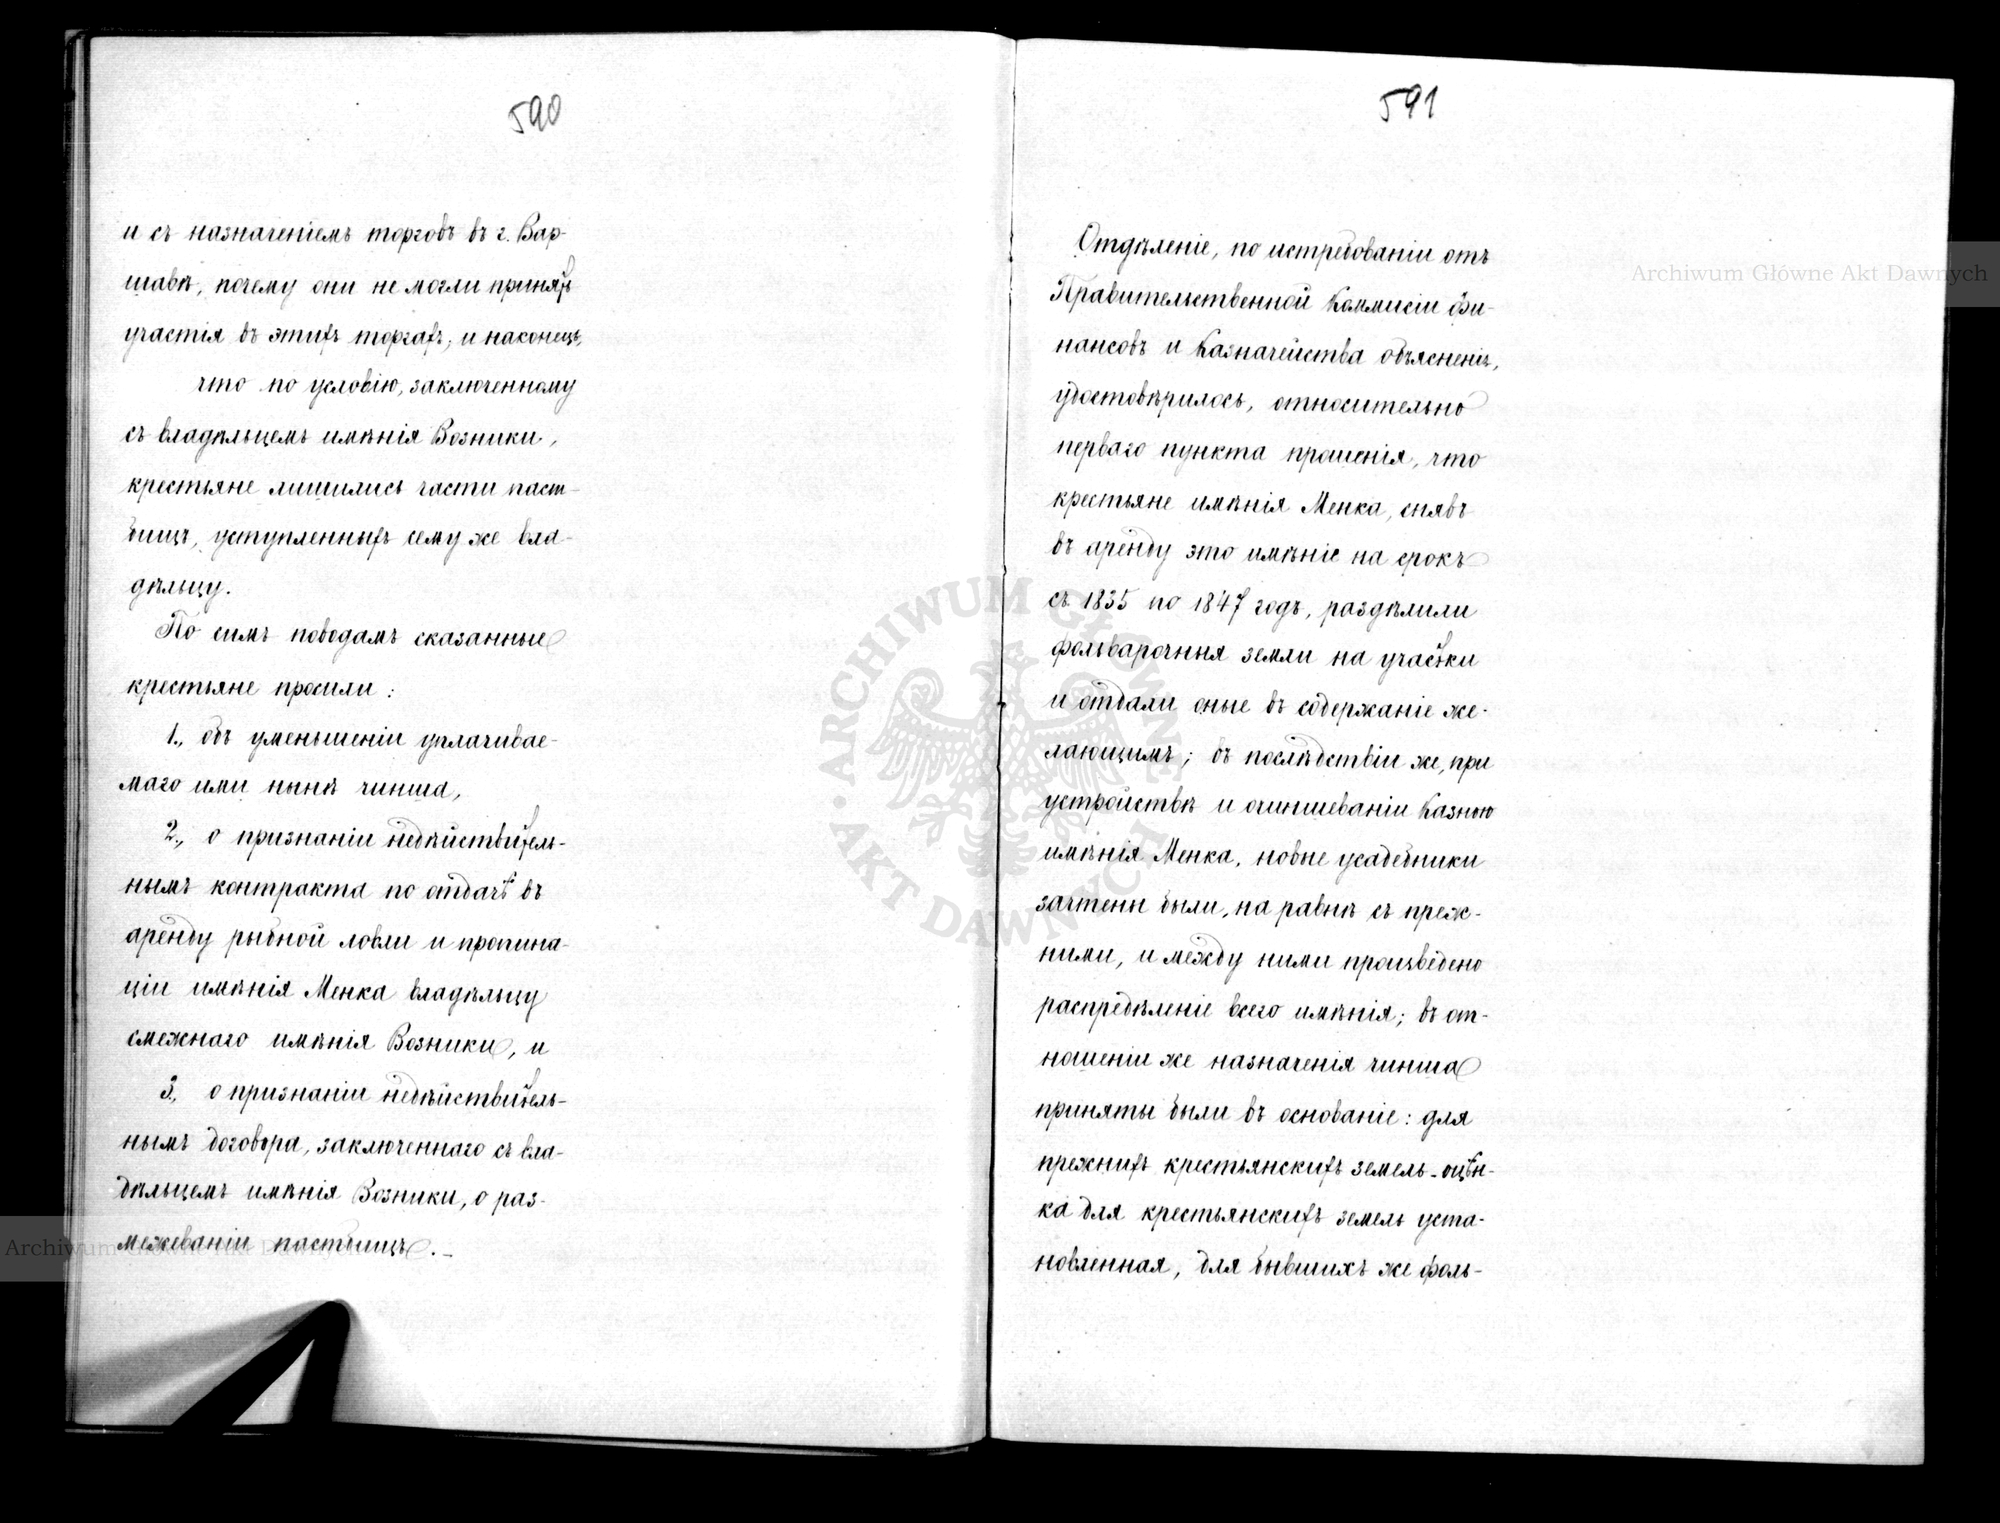 590
и съ назначеніемъ торговъ въ г. Вар-
шавѣ, почему они не могли принять
участія въ этихъ торгахъ, и наконецъ,
что по условію, заключенному
съ владѣльцемъ имѣнія Возники,
крестьяне лишились части паст-
бищъ, уступленныхъ сему же вла-
дѣльцу.
По симъ поводамъ сказанные
крестьяне просили:
1., объ уменьшеніи уплачивае-
маго ими нынѣ чинша,
2., о признаніи недѣйствитель-
нымъ контракта по отдачѣ въ
аренду рыбной ловли и пропина-
ціи имѣнія Менка владѣльцу
смежнаго имѣнія Возники, и
3., о признаніи недѣйствитель-
нымъ договора, заключеннаго съ вла-
дѣльцемъ имѣнія Возники, о раз-
межеваніи пастбищъ.
591
Отдѣленіе, по истребованіи отъ
Правительственной Коммисіи Фи-
нансовъ и Казначейства объясненія,
удостовѣрилось, относительно
перваго пункта прошенія, что
крестьяне имѣнія Менка, снявъ
въ аренду это имѣніе на срокъ
съ 1835 по 1847 годъ, раздѣлили
фольварочныя земли на участки
и отдали оные въ содержаніе же-
лающимъ; въ послѣдствіи же, при
устройствѣ и очиншеваніи Казною
имѣнія Менка, новые усадебники
зачтены были, на равнѣ съ преж-
ними, и между ними произведено
распредѣленіе всего имѣнія; въ от-
ношеніи же назначенія чинша
приняты были въ основаніе: для
прежнихъ крестьянскихъ земель - оцѣн-
ка для крестьянскихъ земель уста-
новленная, для бывшихъ же фоль-
Archiwum Główne Akt Dawnych
Archiwum Główne Akt Dawnych
ARCHIWUM GŁÓWNE AKT DAWNYCH